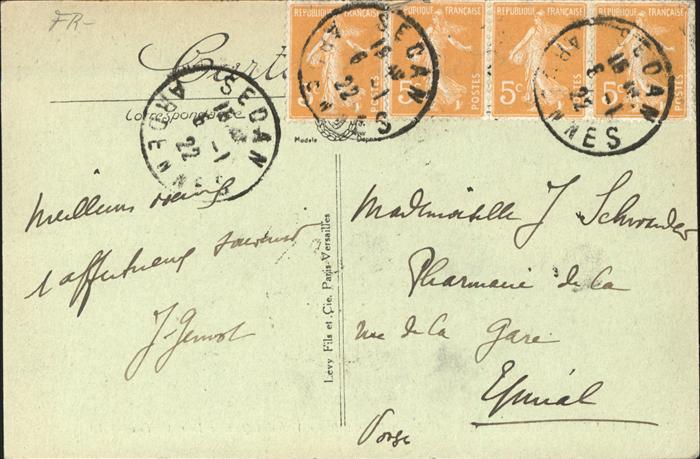 FR-
Carte
REPUBLIQUE FRANÇAISE REPUBLIQUE FRANÇAISE REPUBLIQUE FRANÇAISE REPUBLIQUE FRANÇAISE
5c POSTES 5c POSTES 5c POSTES 5c POSTES
SEDAN ARDENNES
SEDAN ARDENNES
SEDAN ARDENNES
Correspondance
Modèle Déposé
Meilleurs
& affectueux souvenir
J.
Levy Fils et Cie, Paris-Versailles
Mademoiselle J. Schwander
Pharmacie de la
rue de la Gare
Epinal
Vosges